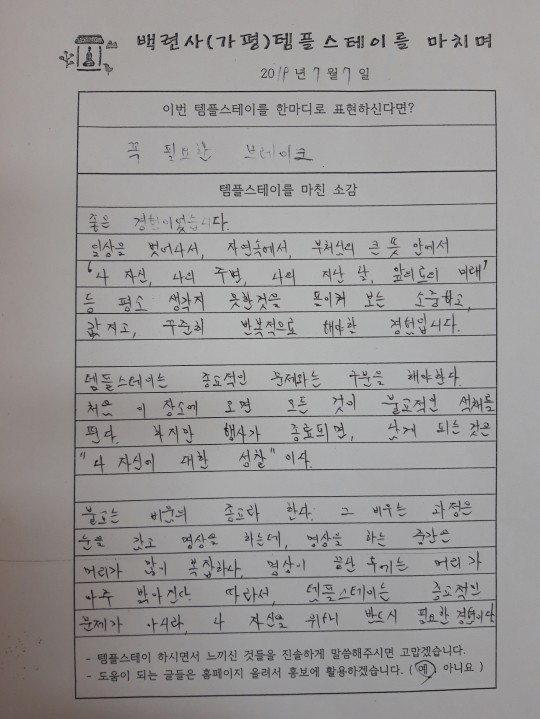 백련사(가평)템플스테이를 마치며
2019 년 7 월 7 일
이번 템플스테이를 한마디로 표현하신다면?
꼭 필요한 브레이크
템플스테이를 마친 소감
좋은 경험이었습니다.
일상을 벗어나서, 자연속에서, 부처님의 큰 뜻 안에서
'나 자신, 나의 주변, 나의 지난 날, 앞으로의 미래'
등 평소 생각지 못한것을 돌이켜 보는 소중하고,
값지고, 꾸준히 반복적으로 해야할 경험입니다.
템플스테이는 종교적인 문제와는 구분을 해야한다.
처음 이 장소에 오면 모든 것이 불교적인 색채를
띈다. 하지만 행사가 종료되면, 남게 되는것은
"나 자신에 대한 성찰" 이다.
불교는 비움의 종교라 한다. 그 비우는 과정은
눈을 감고 명상을 하는데, 명상을 하는 중간은
머리가 많이 복잡하나, 명상이 끝난 후에는 머리가
아주 맑아진다. 따라서, 템플스테이는 종교적인
문제가 아니라, 나 자신을 위해 반드시 필요한 경험이다
- 템플스테이 하시면서 느끼신 것들을 진솔하게 말씀해주시면 고맙겠습니다.
- 도움이 되는 글들은 홈페이지 올려서 홍보에 활용하겠습니다. ( 예 아니요 )